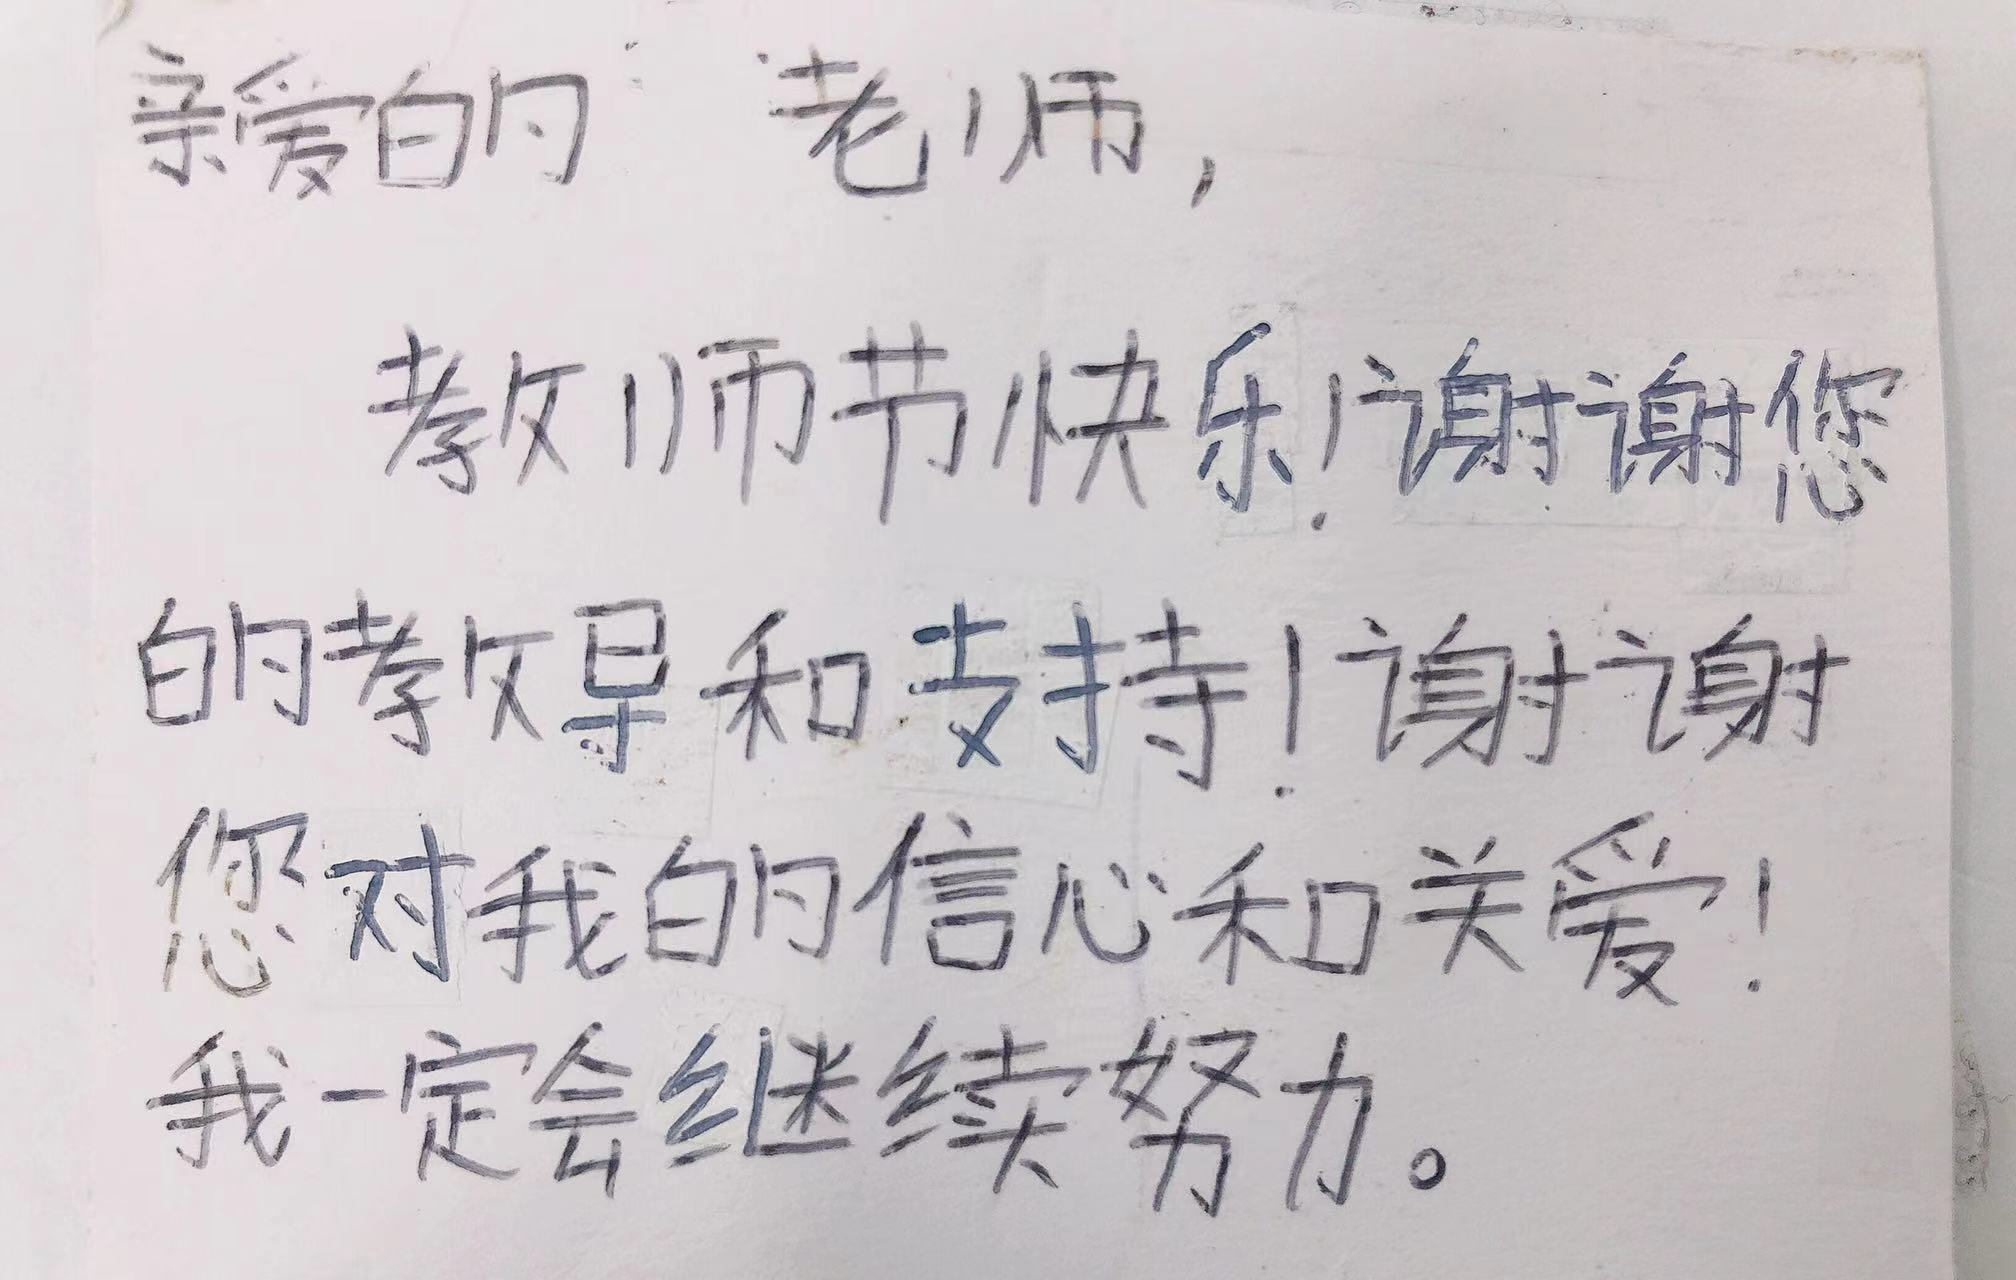 亲爱的 老师,
教师节快乐!谢谢您
的教导和支持!谢谢
您对我的信心和关爱!
我一定会继续努力。